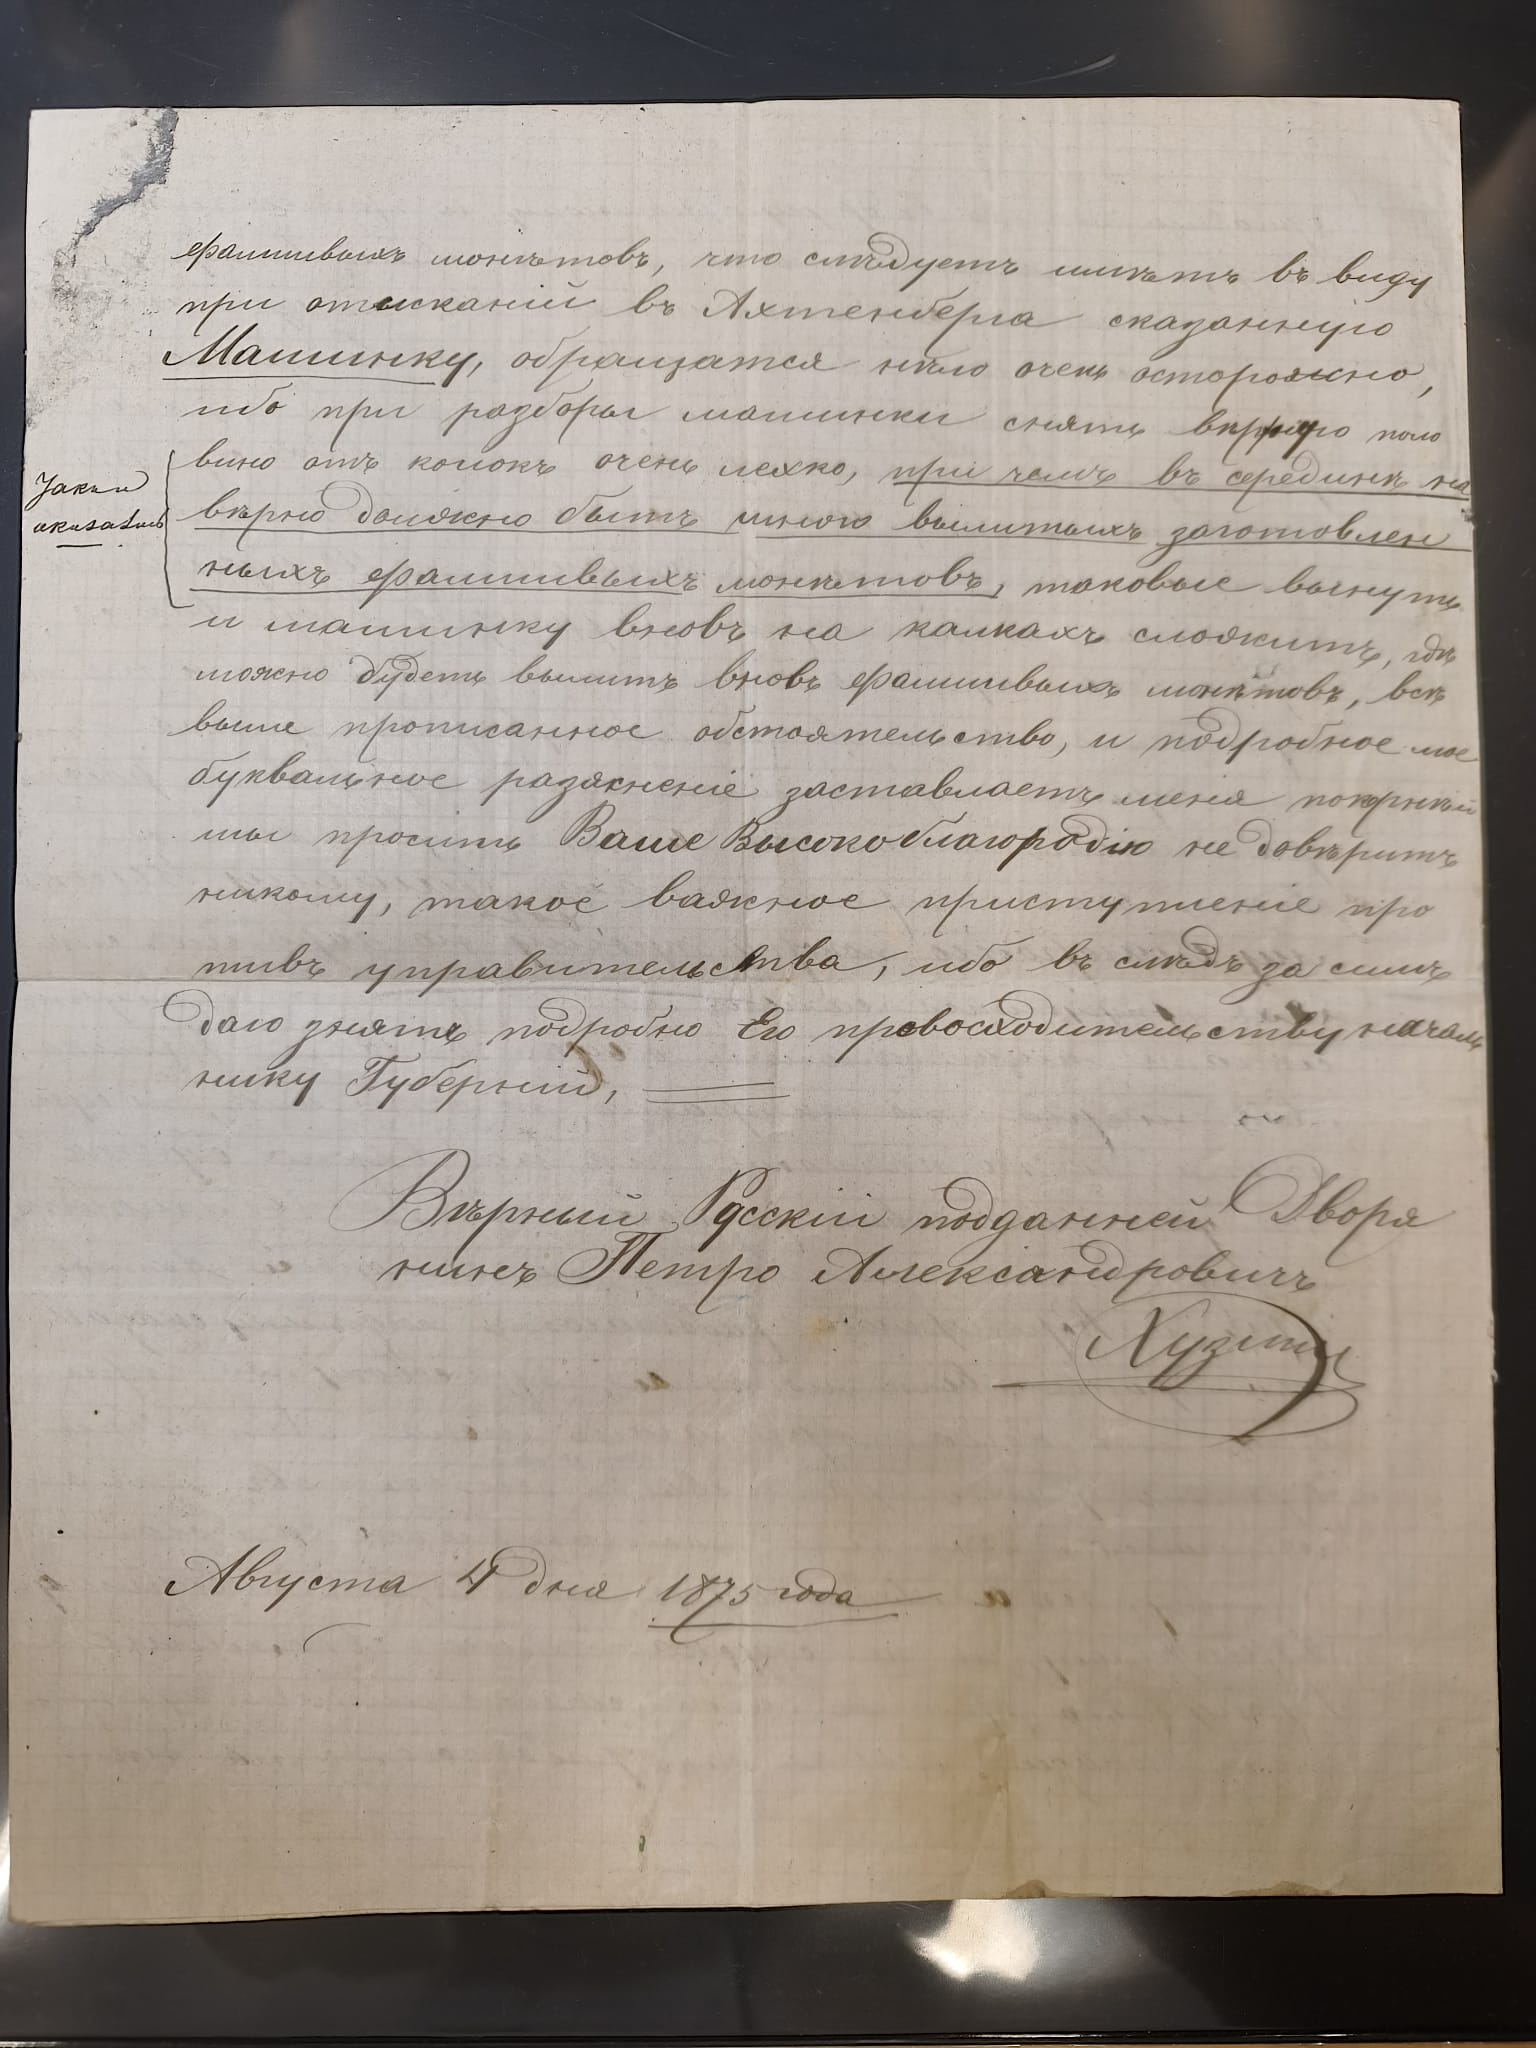 фаишивыхъ монѣтовъ, что слѣдуетъ имѣть въ виду
при отысканій въ Ахтенберга сказанную
Машинку, обращатся нѣю очень осторожно,
ибо при разборы машинки снять верхную поло
вино отъ колокъ очень лехко, при чемъ въ серединѣ на
вѣрно должно бытъ много вылитыхъ заготовлен
ныхъ фаишивыхъ монѣтовъ, таковые вынуть
и машинку вновъ на калкахъ сложитъ, гдѣ
можно будетъ вылитъ вновъ фаишивыхъ монѣтовъ, всѣ
выше прописанное обстоятельство, и подробное мое
буквальное разяснение заставлаетъ меня покорнѣй
шы просить Ваше Высокоблагородію не довѣритъ
никому, такое важное приступленіе про
тивъ управительства, ибо въ слѣдъ за симъ
даю знять подробно Его превосходительству началь
нику Губерній,
Вѣрный Русскій подданней Дворя
нинъ Петро Александровичъ
Хузмин
Августа 4 дня 1875 года